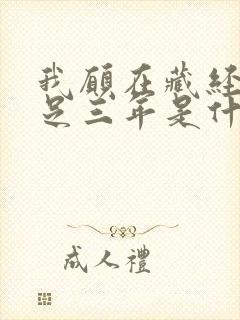 我願在藏經
足三年是什
成人禮